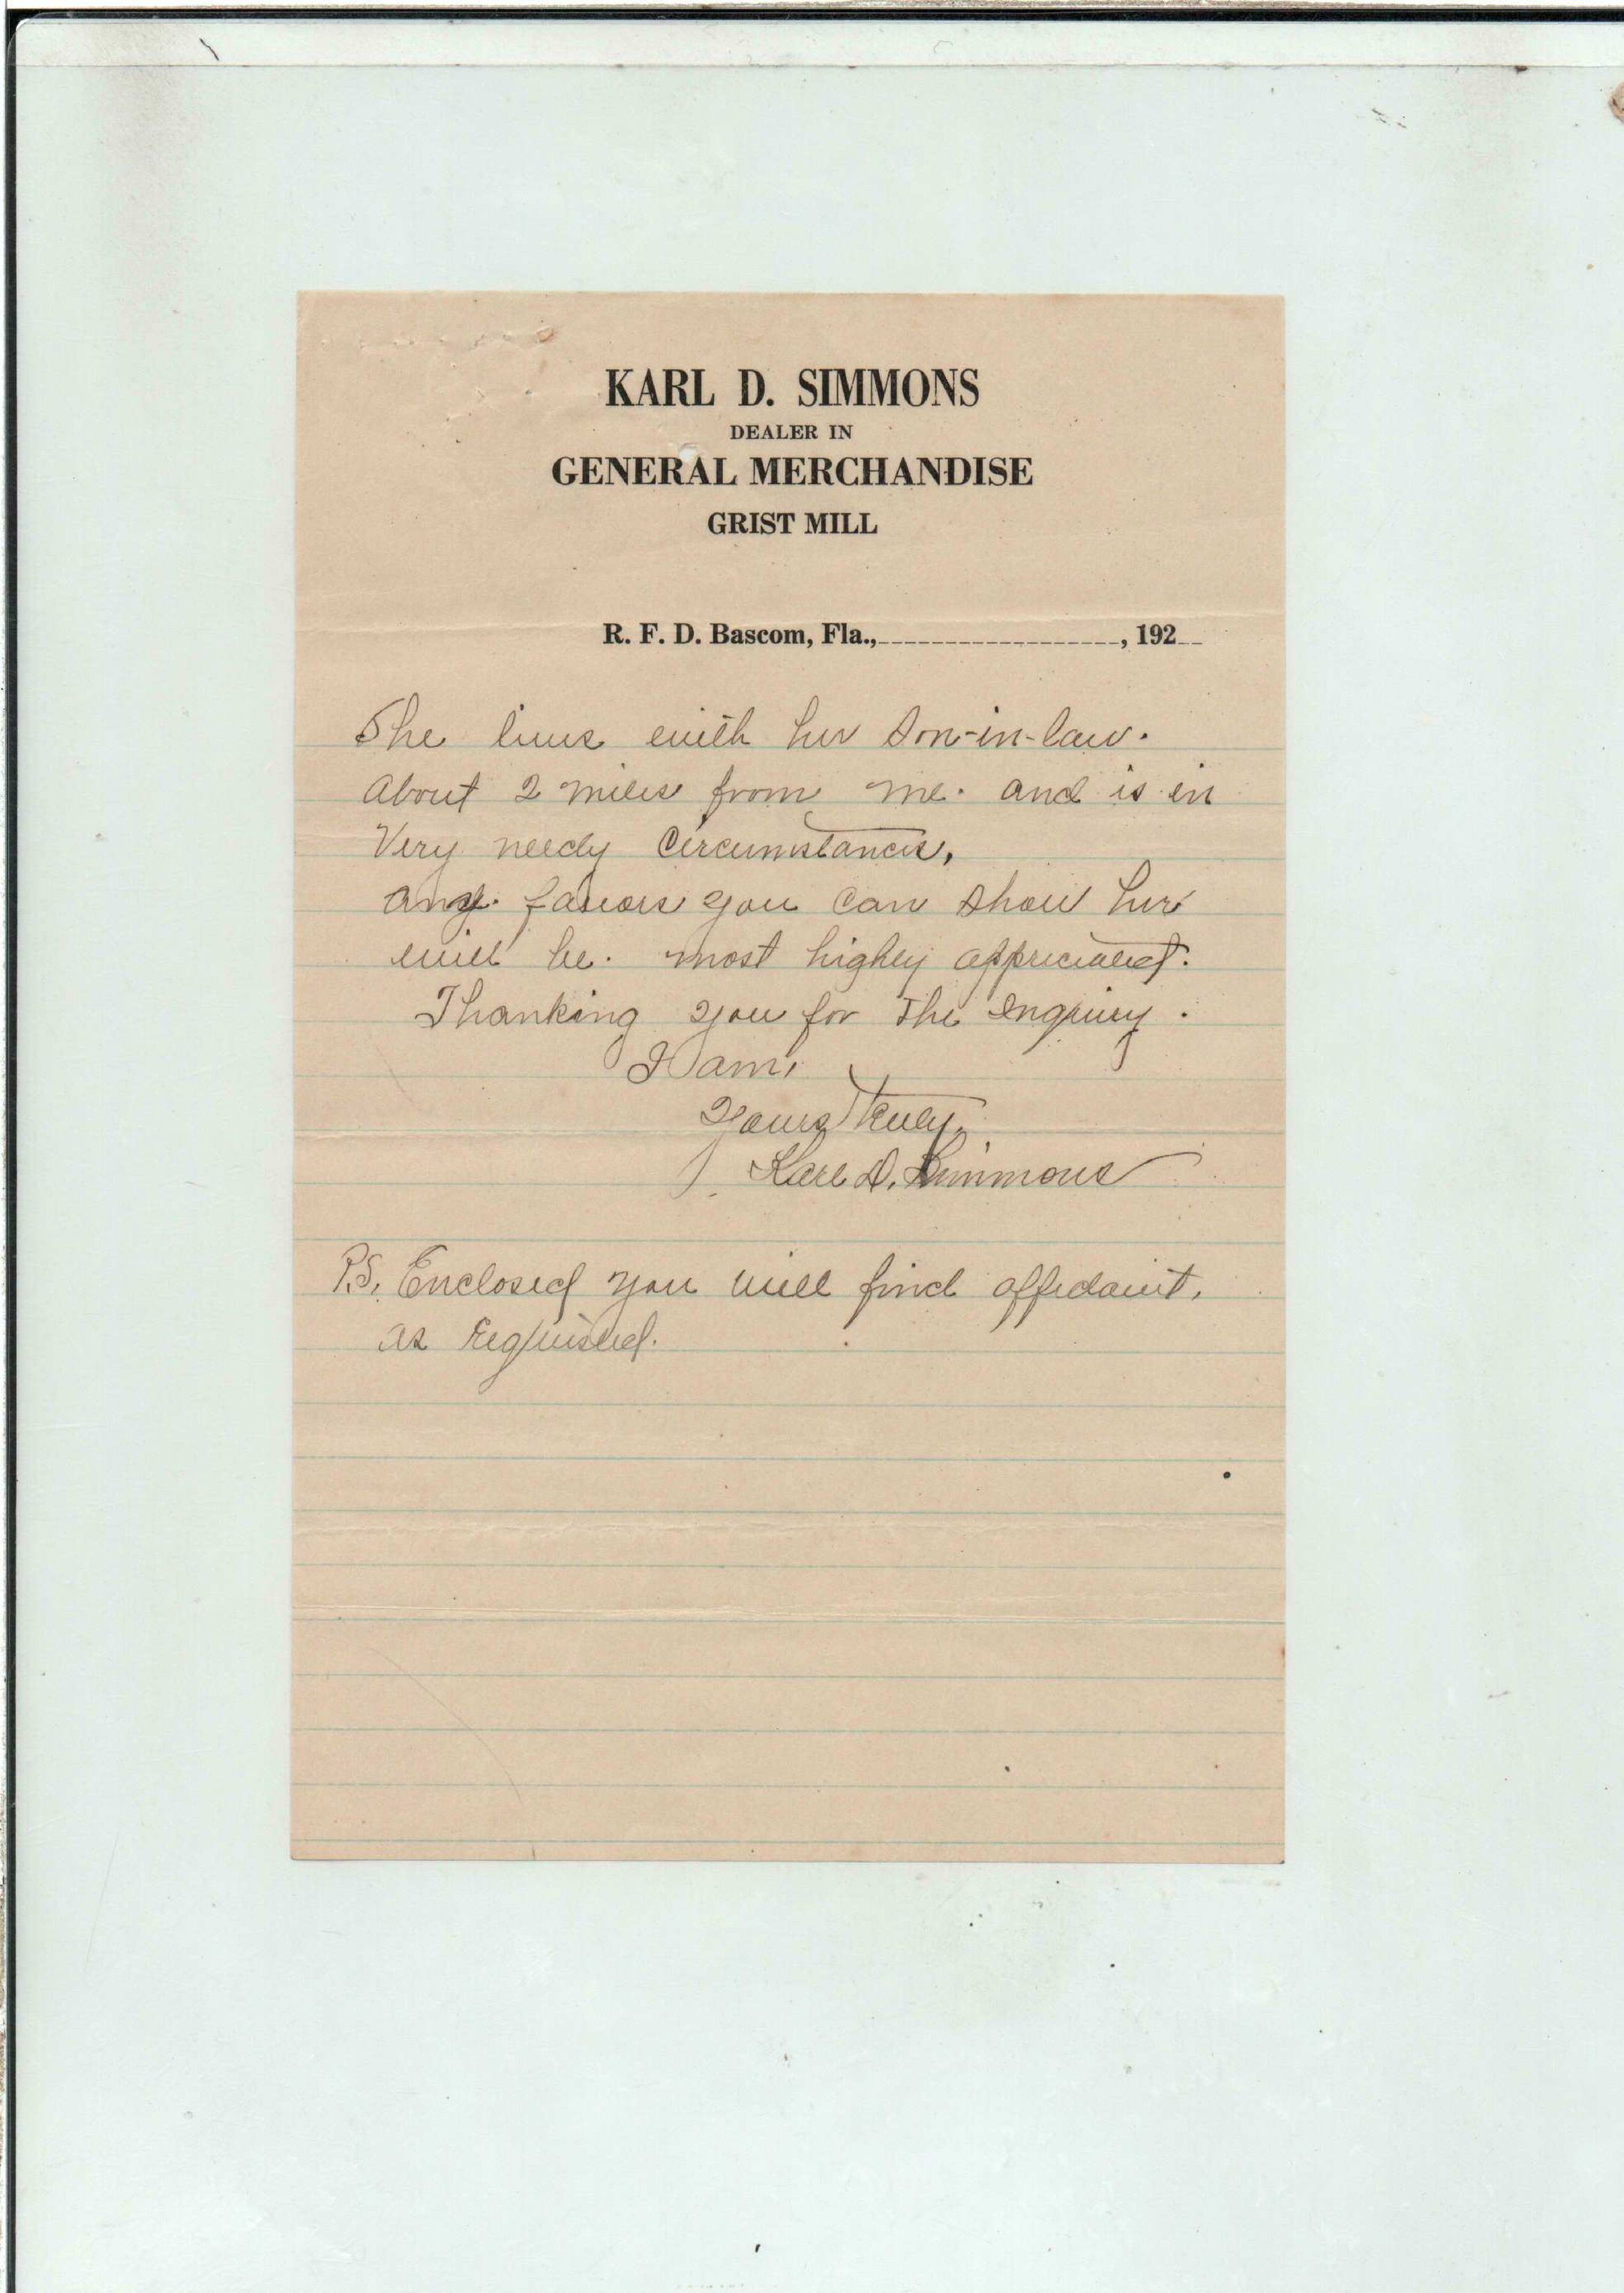 KARL D. SIMMONS
DEALER IN
GENERAL MERCHANDISE
GRIST MILL
R. F. D. Bascom, Fla.,__________________, 192__
She lives with her son-in-law.
About 2 miles from me. and is in
Very needy Circumstances.
any favors you can show her
will be. most highly appreciated.
Thanking you for the inquiry.
I am,
Yours truly,
Karl D. Simmons
P.S. Enclosed you will find affidavit.
as requested.